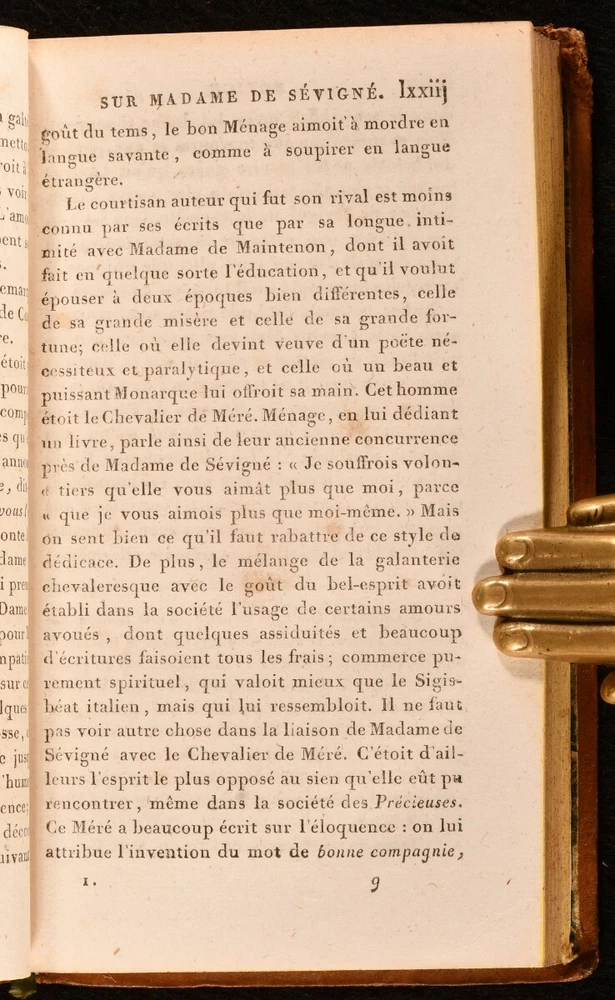 SUR MADAME DE SÉVIGNÉ. lxxiij
goût du tems, le bon Ménage aimoit à mordre en
langue savante, comme à soupirer en langue
étrangère.
Le courtisan auteur qui fut son rival est moins
connu par ses écrits que par sa longue inti-
mité avec Madame de Maintenon, dont il avoit
fait en quelque sorte l'éducation, et qu'il voulut
épouser à deux époques bien différentes, celle
de sa grande misère et celle de sa grande for-
tune; celle où elle devint veuve d'un poëte né-
cessiteux et paralytique, et celle où un beau et
puissant Monarque lui offroit sa main. Cet homme
étoit le Chevalier de Méré. Ménage, en lui dédiant
un livre, parle ainsi de leur ancienne concurrence
près de Madame de Sévigné : « Je souffrois volon-
« tiers qu'elle vous aimât plus que moi, parce
« que je vous aimois plus que moi-même. » Mais
on sent bien ce qu'il faut rabattre de ce style de
dédicace. De plus, le mélange de la galanterie
chevaleresque avec le goût du bel-esprit avoit
établi dans la société l'usage de certains amours
avoués, dont quelques assiduités et beaucoup
d'écritures faisoient tous les frais; commerce pu-
rement spirituel, qui valoit mieux que le Sigis-
béat italien, mais qui lui ressembloit. Il ne faut
pas voir autre chose dans la liaison de Madame de
Sévigné avec le Chevalier de Méré. C'étoit d'ail-
leurs l'esprit le plus opposé au sien qu'elle eût pu
rencontrer, même dans la société des Précieuses.
Ce Méré a beaucoup écrit sur l'éloquence : on lui
attribue l'invention du mot de bonne compagnie,
1. 9